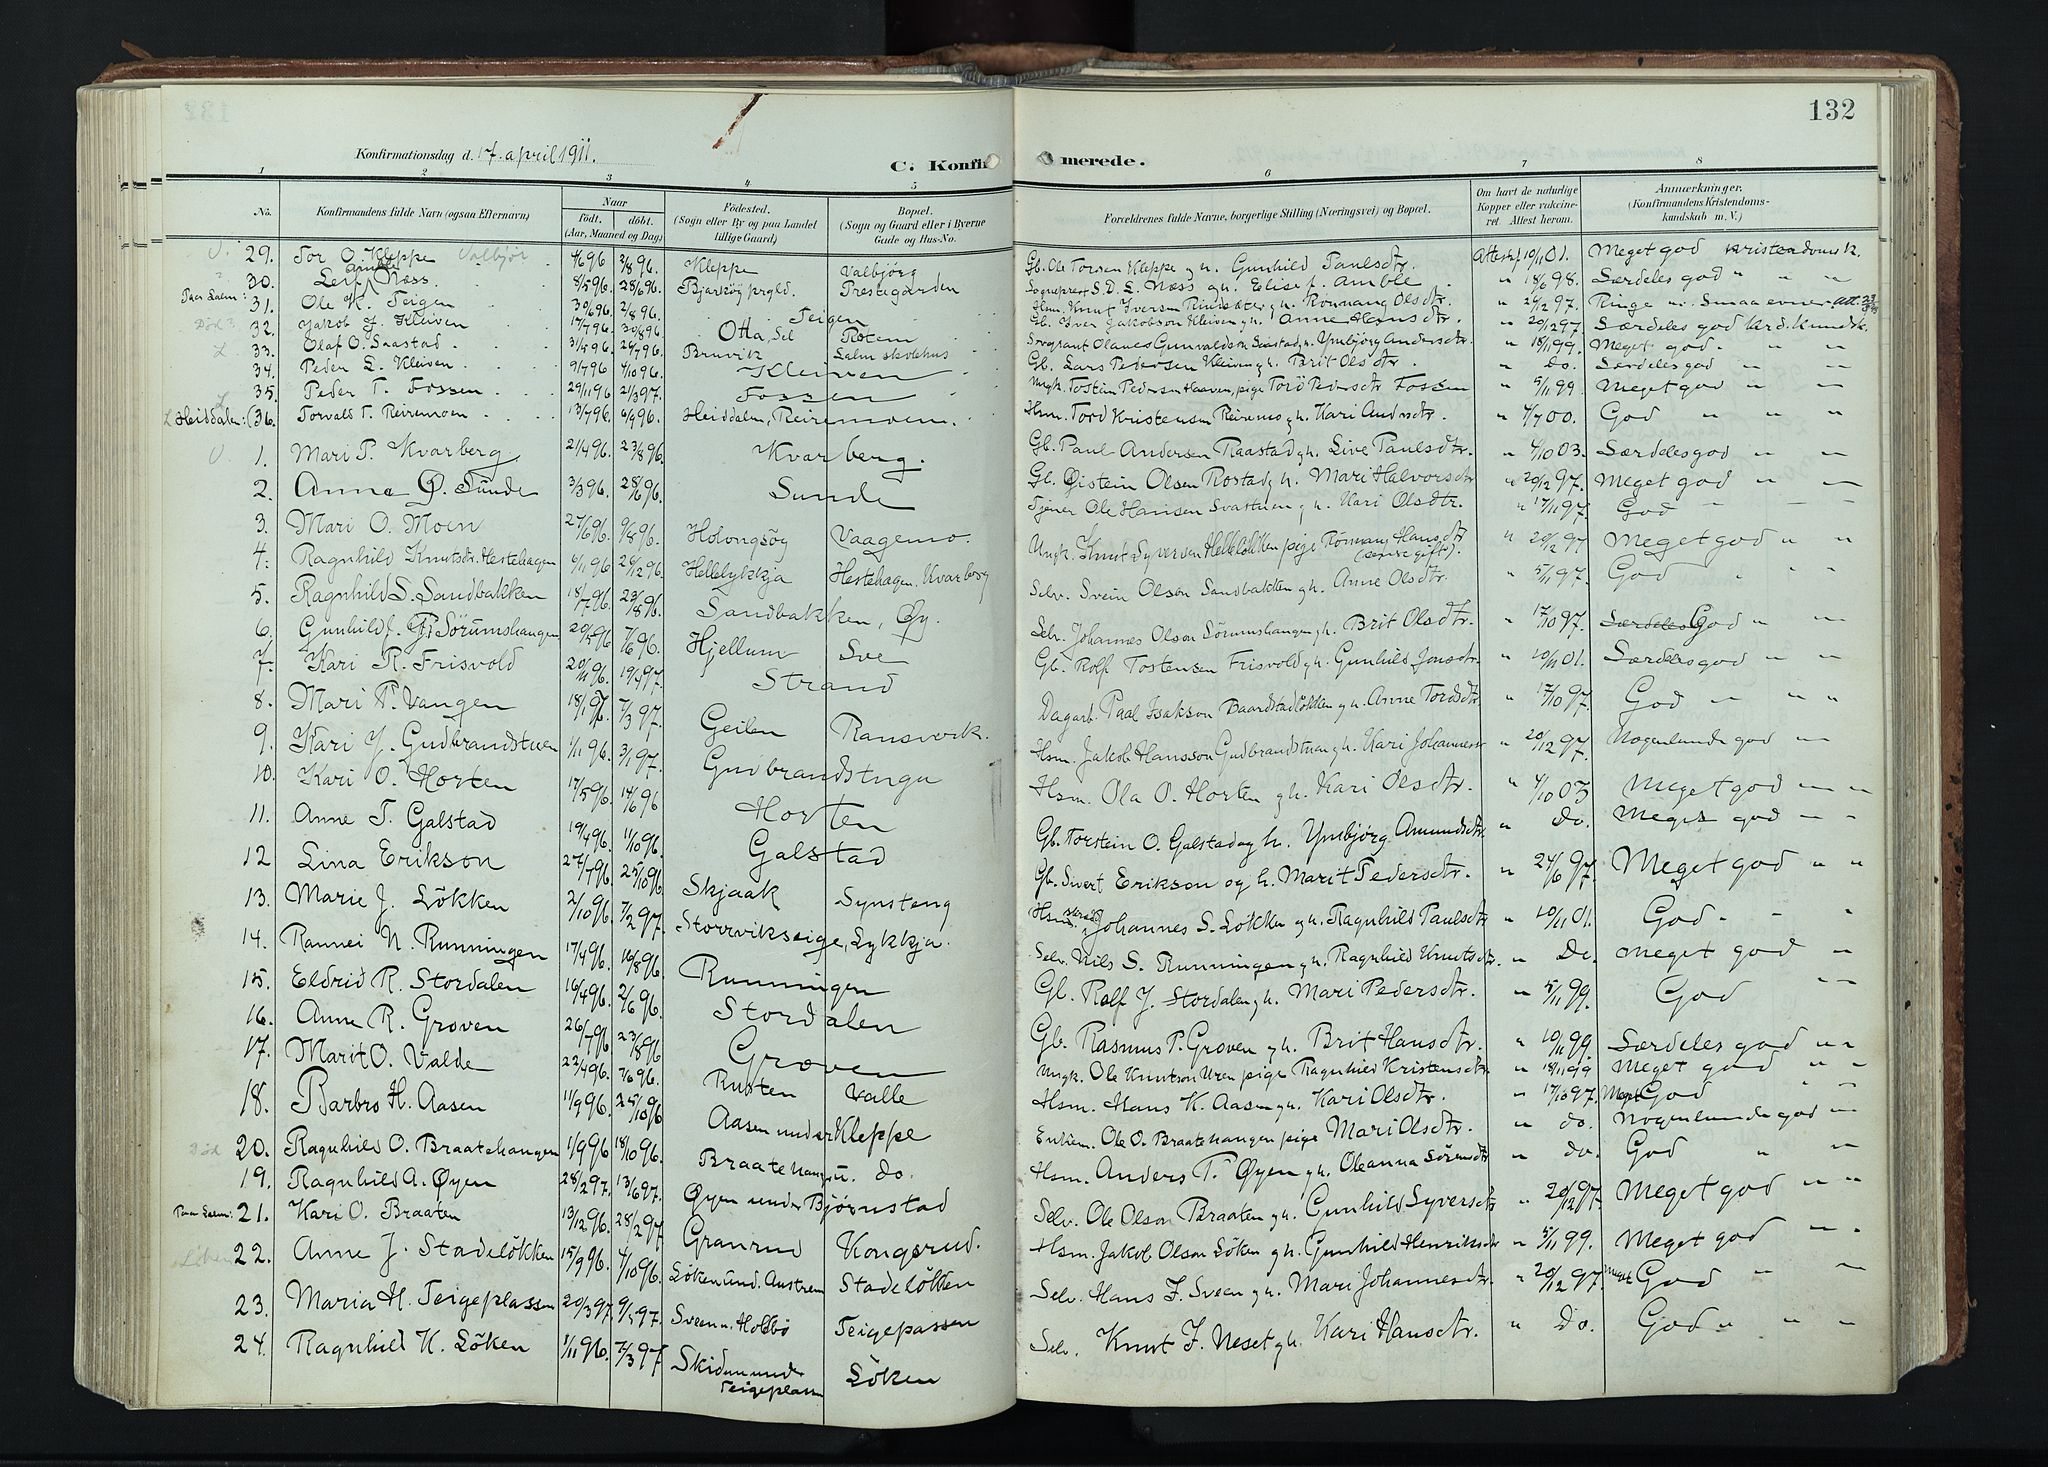 132
Konfirmationsdag d. 17. april 1911.
C. Konfirmerede.
1 2 3 4 5 6 7 8
No. Konfirmandens fulde Navn (ogsaa Efternavn) Naar født, døbt. (Aar, Maaned og Dag) Fødested. (Sogn eller By og paa Landet tillige Gaard) Bopæl. (Sogn og Gaard eller i Byerne Gade og Hus-No. Forældrenes fulde Navne, borgerlige Stilling (Næringsvei) og Bopæl. Om havt de naturlige Kopper eller vaccineret. Attest herom. Anmærkninger. (Konfirmandens Kristendomskundskab m. V.)
29. Tor O. Kleppe Valbjør 2/8 96. Kleppe Valbjørg Gb. Ole Torsen Kleppe og h. Gunhild Paulsdtr. 10/11 01. Meget god Kristendoms k.
30. Amble Næss 8/5 96. 28/6 96. Bjarkøy prgld. Prestegarden Sogneprest S. D. L. Næss og h. Elise f. Amble " 18/6 98. Særdeles god " "
Paa Salm: 31. Ole K. Teigen 30/6 96. 2/8 96. Teigen Hsm. Knut Iversen og h. Rönnaug Olsdtr. " 29/12 97. Ringe Smaa evner
32. Jakob I. Kleiven 17/7 96. 30/8 96. Otta, Sel Rotem Gb. Iver Jakobson Kleiven og h. Anne Hansdtr. " 20/12 97. Særdeles god Krd. Kundsk.
33. Olaf O. Saastad 31/5 96. 26/7 96. Bruvik Salm skolehus Olaves Gunvaldsen Saastad og h. Ymbjörg Andersdtr. " 18/11 99. Meget god " "
34. Peder L. Kleiven 9/7 96 4/10 96. Kleiven Gb. Lars Pedersen Kleiven og h. Brit Olsdtr. " Do. Særdeles god " "
35. Peder T. Fossen 29/11 96 21/3 97. Fossen Ungk. Tostein Pedersen Haaven, pige Torö Pedersdtr. Fossen " 5/11 99. Meget god " "
Heiddalen: (36. Torvald T. Reiremoen 13/7 96. 6/9 96. Heiddalen, Reiremoen. Hsm. Tord Kristensen Reiremo og h. Kari Andersdtr. " 4/7 00. God " " "
1. Mari P. Kvarberg 21/4 96. 23/8 96. Kvarberg. Gb. Paul Andersen Raastad og h. Live Paulsdtr. " 4/10 03. Særdeles god " "
2. Anne Ø. Sunde 3/3 96. 28/6 96. Sunde Gb. Øistein Olsen Rostad og h. Mari Halvorsdtr " 20/12 97. Meget god " "
3. Mari O. Moen 27/6 96. 9/8 96. Holongsöy Vaagemo. Tjener Ole Hansen Svastuen og h. Kari Olsdtr. " 17/11 97. God
4. Ragnhild Knutsdr. Hestehagen 6/11 96 26/12 96. Hellelykkja Hestehagen. Kvarberg Ungk. Knut Syversen Hellelökken pige Rönnaug Hansdtr. (senere gift). " 20/12 97 Meget god " "
5. Ragnhild S. Sandbakken 18/7 96. 23/8 96. Sandbakken, Øy. Selv. Svein Olson Sandbakken og h. Anne Olsdtr. " 5/11 97. God " "
6. Gunhild J. Sörumshangen 20/5 96 7/6 96. Hjellum Sve Selv. Johannes Olson Sörumshangen og h. Brit Olsdtr. " 17/10 97. Særdeles God " "
7. Kari R. Frisvold 20/11 96. 19/4 97. Strand Gb. Rolf Tostensen Frisvold og h. Gunhild Jonsdtr. " 10/11 01. Særdeles god " "
8. Mari P. Vangen 18/1 97. 7/3 97. Geilen Ransverk. Dagarb. Paal Isakson Baardstadlökken og h. Anne Tordsdtr " 17/10 97. God " " "
9. Kari J. Gudbrandstuen 1/11 96. 3/1 97. Gudbrandstugu Hsm. Jakob Hansson Gudbrandstuen og h. Kari Johannesdtr " 20/12 97. Nogenlunde god "
10. Kari O. Horten 17/5 96. 14/6 96 Horten Hsm. Ola O. Horten og h. Kari Olsdtr. " 4/10 03 Meget god " "
11. Anne T. Galstad 19/4 96. 11/10 96. Galstad Gb. Torstein O. Galstad og h. Ymbjörg Amundsdtr " Do. Meget god " "
12 Lina Erikson 27/7 96. 25/10 96 Skjaak Synsteng Gb. Sivert Erikson og h. Marit Pedersdtr. " 24/6 97. Meget god " "
13. Marie J. Lökken 2/10 96. 7/2 97. Storrvikseige, Lykkja. Hsm. Johannes S. Lökken og h. Ragnhild Paulsdtr " 10/11 01. God " " "
14. Rannei N. Runningen 17/4 96. 16/8 96. Runningen Selv. Nils S. Runningen og h. Ragnhild Knutsdtr. " Do. Meget god "
15. Eldrid R. Stordalen 16/4 96. 2/6 96. Stordalen Gb. Rolf J. Stordalen og h. Mari Pedersdtr. " 5/11 99. God " "
16. Anne R. Groven 26/7 96. 23/8 96 Groven Gb. Rasmus P. Groven og h. Brit Hansdtr. " 10/11 99. Særdeles god " "
17. Marit O. Valde 22/4 96. 7/6 96. Rusten Valle Ungk. Ole Knutson Uren pige Ragnhild Kristensdtr " 18/11 99 Meget god " "
18. Barbro H. Aasen 11/9 96. 25/10 96 Aasen under Kleppe Hsm. Hans K. Aasen og h. Kari Olsdtr. " 17/10 97. Meget God " "
Död 20. Ragnhild O. Braatehangen 1/9 96 18/10 96. Braatehang u. do. Enkem. Ole O. Braatehangen pige Mari Olsdtr. " do. Nogenlunde god "
19. Ragnhild A. Øyen 28/2 97. 13/6 97. Øyen under Bjørnstad Hsm. Anders P. Øyen og h. Oleanna Sörensdtr " do. God " "
Paa Salm: 21. Kari O. Braaten 13/12 96. 28/2 97 Granrud Kongsrud. Selv. Ole Olson Braaten og h. Gunhild Syversdtr " 20/12 97. Meget god " "
22. Anne J. Stadelökken 15/9 96. 4/10 96. Löken und. Austrem Stadelökken Hsm. Jakob Olson Löken og h. Gunhild Henriksdtr " 5/11 99. Meget god " "
23. Maria H. Teigeplassen 20/3 97. 9/5 97. Sveen u. Holbö Teigepassen Selv. Hans F. Sveen og h. Mari Johannesdtr. " 20/12 97. Meget God " "
24. Ragnhild K. Löken 1/11 96. 7/3 97. Skidun under Teigeplassen Löken Selv. Knut F. Neset og h. Kari Hansdtr. " Do. God " " "